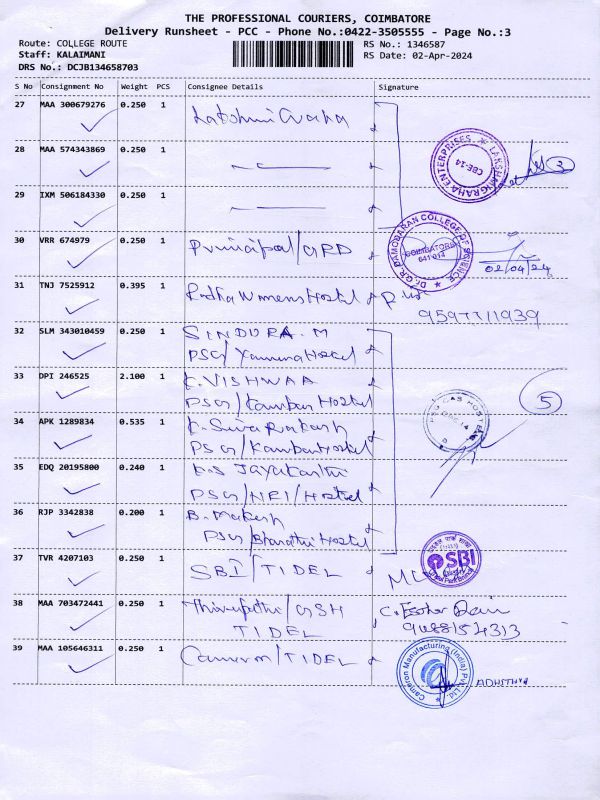 THE PROFESSIONAL COURIERS, COIMBATORE
Delivery Runsheet - PCC - Phone No.:0422-3505555 - Page No.:3
Route: COLLEGE ROUTE
RS No.: 1346587
Staff: KALAIMANI
RS Date: 02-Apr-2024
DRS No.: DCJB134658703
S No Consignment No Weight PCS Consignee Details Signature
27 MAA 300679276 0.250 1
28 MAA 574343869 0.250 1
LAKSHMIGRAHA ENTERPRISES
CBE-14
3
29 IXM 506184330 0.250 1
30 VRR 674979 0.250 1 Principal/GRD
Dr. G.R. DAMODARAN COLLEGE OF SCIENCE
COIMBATORE
641 014
02/04/24
31 TNJ 7525912 0.395 1 Radha Womens Hostel
32 SLM 343010459 0.250 1 SINDURA. M
PSG/Yamuna Hostel
33 DPI 246525 2.100 1 K. VISHWAA
PSG/Kamban Hostel
5
34 APK 1289834 0.535 1 K. Siva Prakash
PSG/Kamban Hostel
35 EDQ 20195800 0.240 1
PSG/NRI/Hostel
36 RJP 3342838 0.200 1 B. Mukesh
PSG/Bharathi Hostel
37 TVR 4207103 0.250 1 SBI/TIDEL
SBI
38 MAA 703472441 0.250 1 Thirupathi/GSH
TIDEL
9488154313
39 MAA 105646311 0.250 1 Cameron/TIDEL
Cameron Manufacturing (India) Pvt. Ltd
ADHITHYA